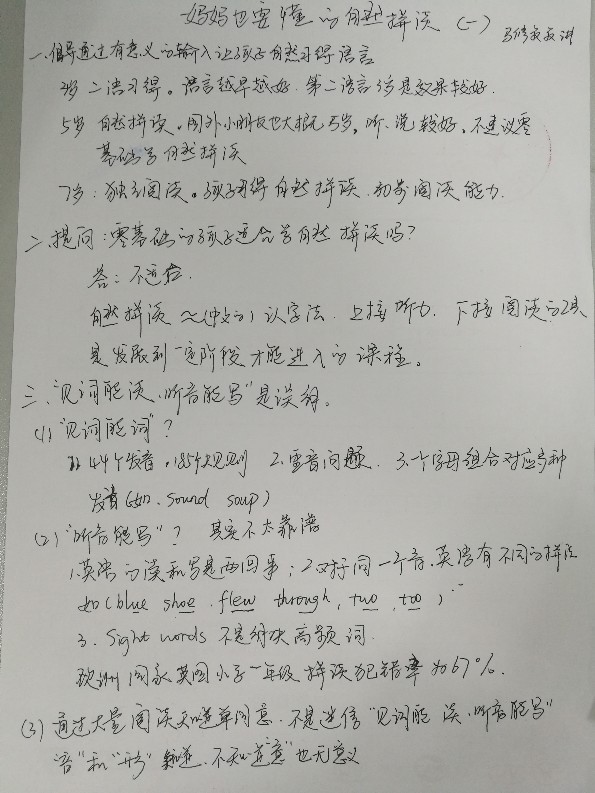 妈妈也要懂的自然拼读(一)
一、倡导通过有意义的输入让孩子自然习得语言
3岁 二语习得。语言越早越好.第二语言3岁是效果较好.
5岁 自然拼读。国外小朋友也大概5岁,听、说较好,不建议零
基础学自然拼读
7岁:独立阅读。孩子习得自然拼读.初步阅读能力.
二、提问:零基础的孩子适合学自然拼读吗?
答:不适合.
自然拼读≈(中文的)认字法.上接听力.下接阅读的工具
是发展到一定阶段才能进入的课程。
三、"见词能读,听音能写"是误解。
(1)"见词能词"?
1.44个发音,185个规则 2.重音问题. 3.一个字母组合对应多种
发音(如.sound soup)
(2)"听音能写"? 其实不太靠谱
1.英语的读和写是两回事;2.对于同一个音,英语有不同的拼法
如(blue shoe.flew through,two,too)
3.Sight words 不是解决高频词.
欧洲国家英国小学一年级拼读犯错率为67%.
(3)通过大量阅读知道单词意.不是迷信"见词能读,听音能写"
"音"和"形"知道,不知道"意"也无意义